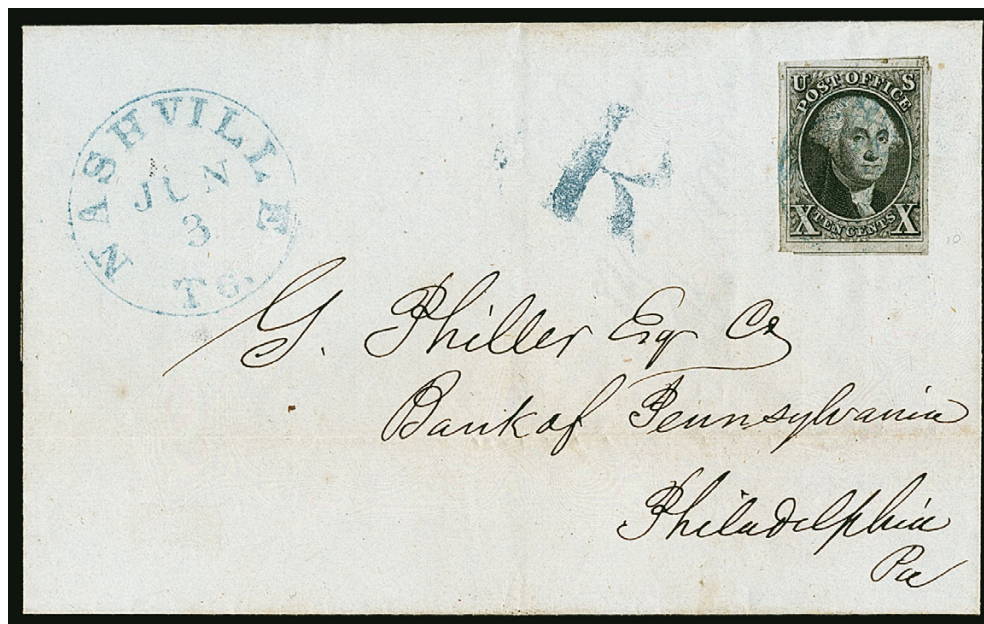 NASHVILLE
JUN
3
Te.
U S
POST OFFICE
X TEN CENTS X
10
G. Philler Esq Cr
Bank of Pennsylvania
Philadelphia
Pa